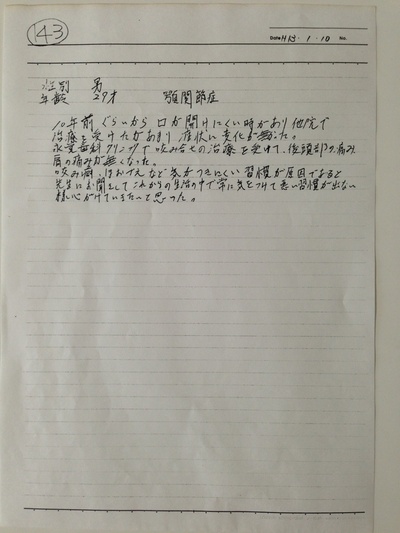 43
Date H13・1・10 No.
性別 男
年齢 29才 顎関節症
10年前ぐらいから口が開けにくい時があり他院で
治療を受けたがあまり症状に変化が無かった。
歯科クリニックで咬み合せの治療を受けて、後頭部の痛み
肩の痛みが無くなった。
咬み癖、ほおづえなど気がつきにくい習慣が原因であると
先生にお聞きしてこれからの生活の中で常に気をつけて悪い習慣が出ない
様心がけていきたいと思った。